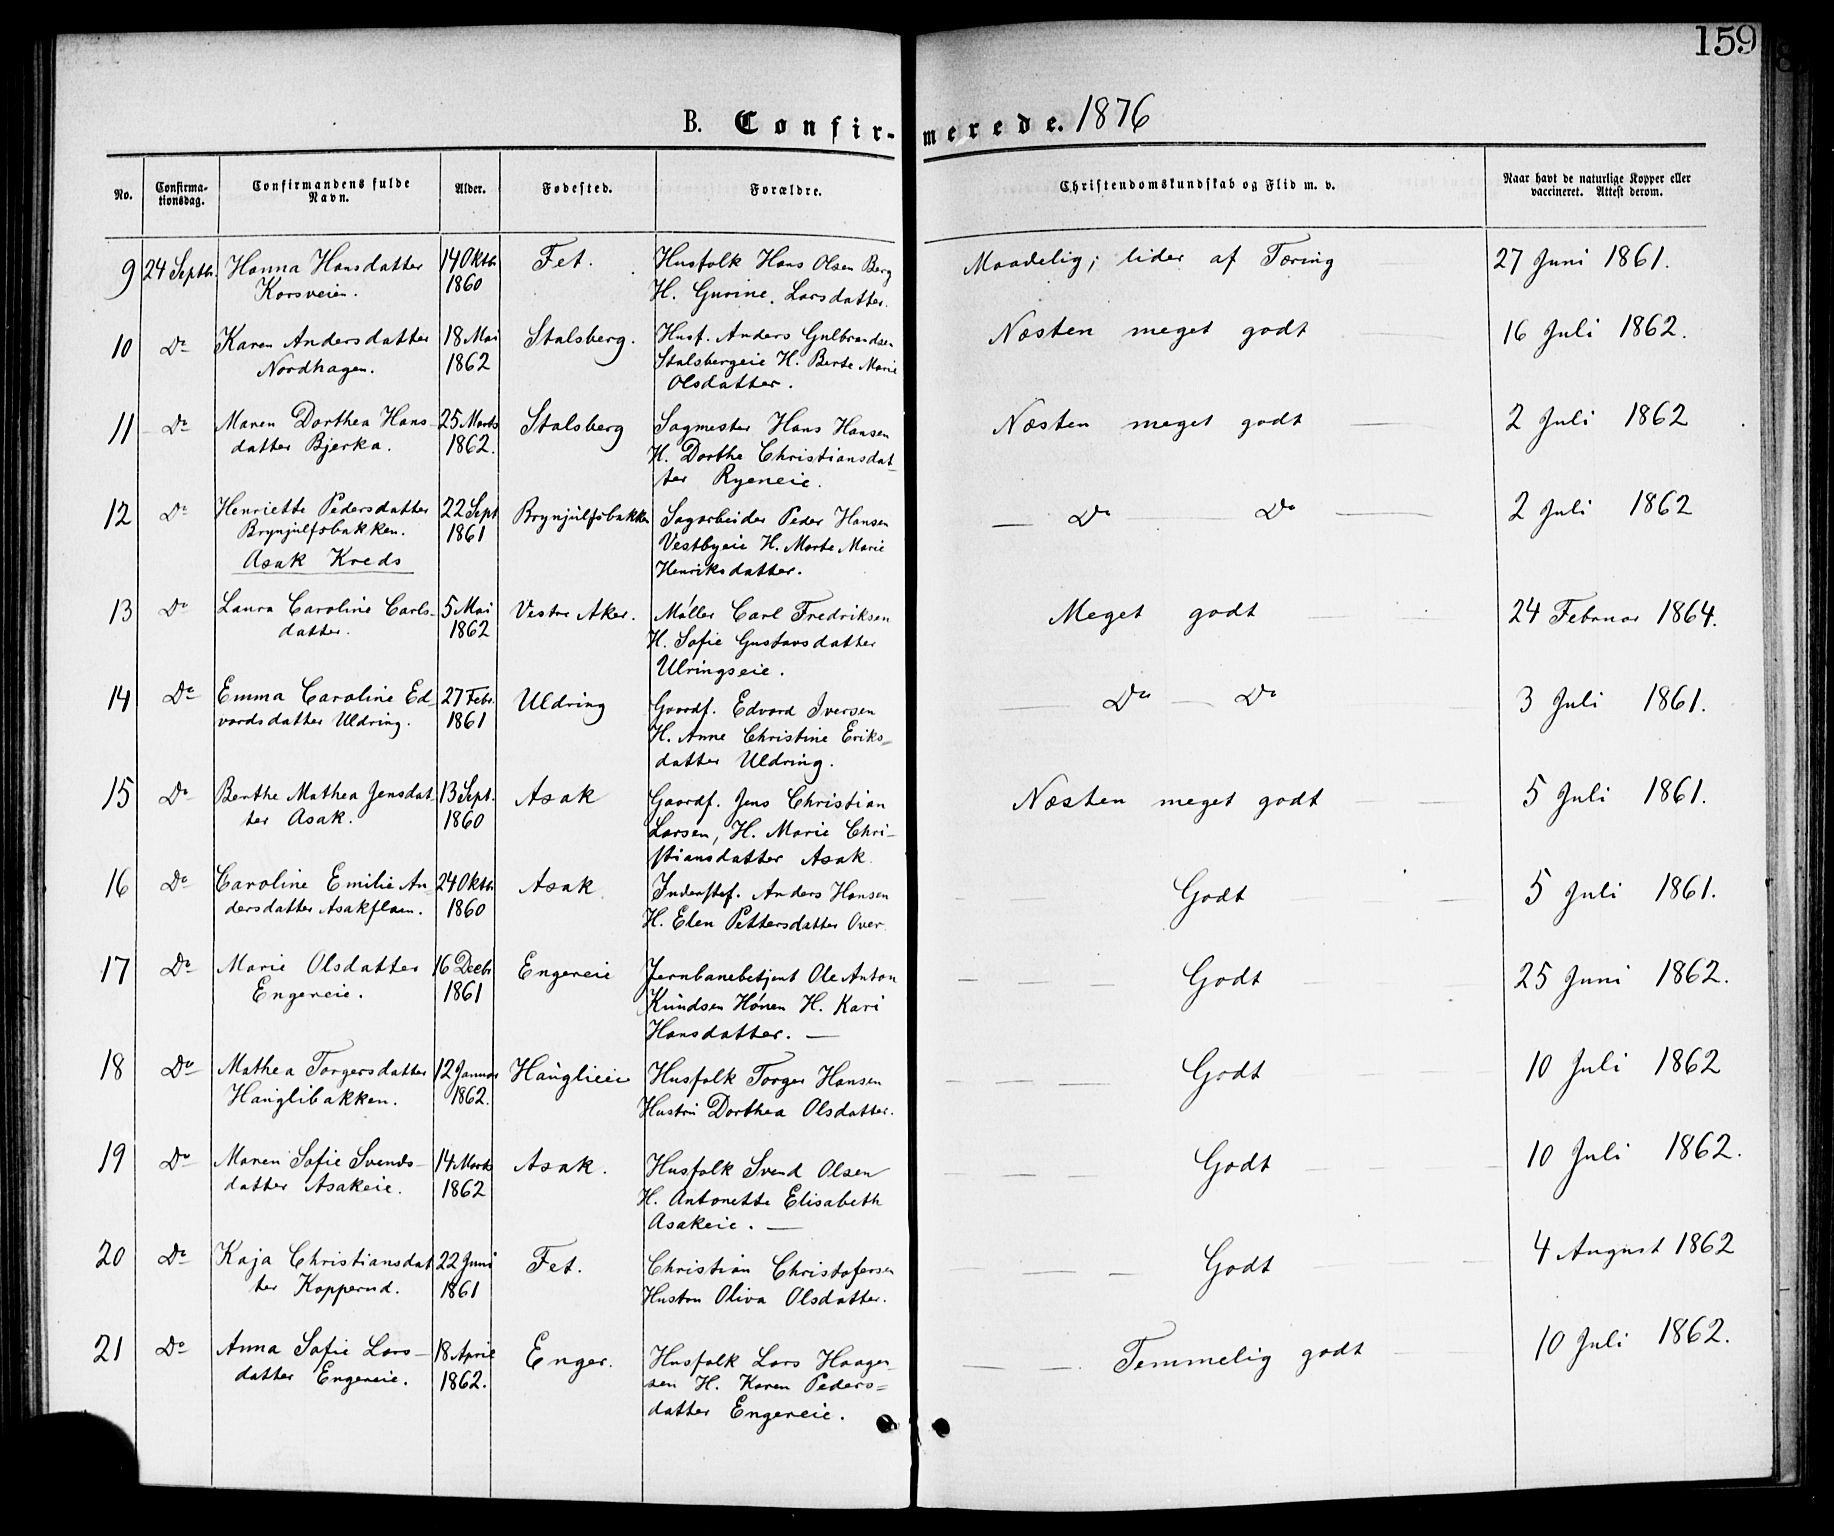 159
B. Confirmerede. 1876
No.
Confirmationsdag.
Confirmandens fulde Navn.
Alder.
Fødested.
Forældre.
Christendomskundskab og Flid m. v.
Naar havt de naturlige Kopper eller vaccineret. Attest derom.
9 24 Septbr. Hanna Hansdatter 14 Oktb. Fet. Husfolk Hans Olsen Berg Maadelig; lider af Tæring 27 Juni 1861.
Korsveien. 1860 H. Gurine Larsdatter.
10 Do Karen Andersdatter 18 Mai Stalsberg. Husf. Anders Gulbrandsen Næsten meget godt 16 Juli 1862.
Nordhagen. 1862 Stalsbergeie H. Berte Marie
Olsdatter.
11 Do Maren Dorthea Hans- 25 Marts Stalsberg Sagmester Hans Hansen Næsten meget godt 2 Juli 1862
datter Bjerka. 1862. H. Dorthe Christiansdat-
ter Ryeneie.
12 Do Henriette Pedersdatter 22 Sept Brynjulfsbakken Sagarbeider Peder Hansen Do Do 2 Juli 1862
Brynjulfsbakken. 1861 Vestbyeie H. Marte Marie
Asak Kreds Henriksdatter.
13 Do Laura Caroline Carls- 5 Mai Vestre Aker. Møller Carl Fredriksen Meget godt 24 Februar 1864.
datter. 1862 H. Sofie Gustavsdatter
Ulringseie.
14 Do Emma Caroline Ed- 27 Febr. Uldring Gaardf. Edvard Iversen Do Do 3 Juli 1861.
vardsdatter Uldring. 1861 H. Anne Christine Eriks=
datter Uldring.
15 Do Berthe Mathea Jensdat- 13 Sept. Asak Gaardf. Jens Christian Næsten meget godt 5 Juli 1861.
ter Asak. 1860 Larsen, H. Marie Chri-
stiansdatter Asak.
16 Do Caroline Emilie An- 24 Oktb. Asak Inderstef. Anders Hansen Godt 5 Juli 1861.
dersdatter Asakflaen. 1860 H. Elen Pettersdatter Over
17 Do Marie Olsdatter 16 Decbr Engereie Jernbanebetjent Ole Anton Godt 25 Juni 1862.
Engereie. 1861 Knudsen Hónen H. Kari
Hansdatter. —
18 Do Mathea Torgersdatter 12 Januar Hauglieie Husfolk Torger Hansen Godt 10 Juli 1862
Hauglibakken. 1862. Hustru Dorthea Olsdatter.
19 Do Maren Sofie Svends- 14 Marts Asak. Husfolk Svend Olsen Godt 10 Juli 1862.
datter Asakeie. 1862 H. Antonette Elisabeth
Asakeie. —
20 Do Kaja Christiansdat- 22 Juni Fet. Christian Christofersen Godt 4 August 1862
ter Kopperud. 1861 Hustru Oliva Olsdatter.
21 Do Anna Sofie Lars- 18 April Enger. Husfolk Lars Haagen- Temmelig godt 10 Juli 1862.
datter Engereie. 1862. sen H. Karen Peders=
datter Engereie.